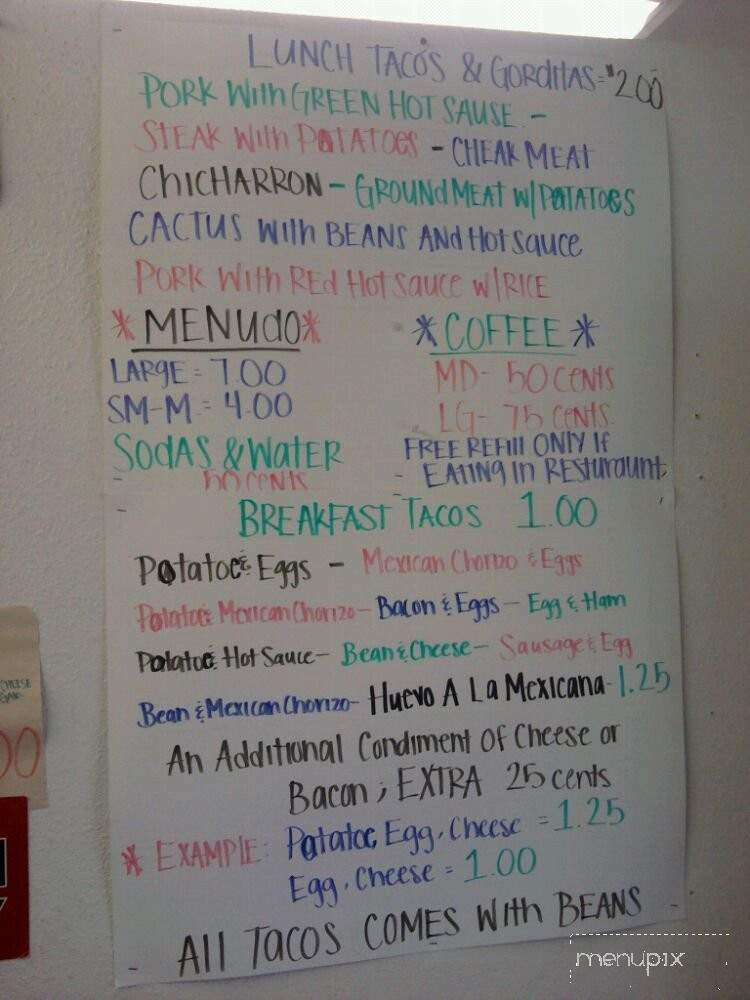 LUNCH TACOS & GORDITAS = $2.00
PORK With GREEN HOT SAUSE -
STEAK With POTATOES - CHEAK MEAT
CHICHARRON - GROUND MEAT W/ POTATOES
CACTUS With BEANS ANd Hot Sauce
PORK With REd Hot Sauce W/RICE
*MENUdO*
LARGE = 7.00
SM-M = 4.00
SOdAS & WatER
50 CENTS
*COFFEE*
MD- 50 CENtS
LG- 75 CENtS
FREE REFill ONlY If
EATING IN RESturaunt
BREAKFAST TACOS 1.00
Potatoe & Eggs - Mexican Chorizo & Eggs
Potatoe & Mexican Chorizo - Bacon & Eggs - Egg & Ham
Potatoe & Hot Sauce - Bean & Cheese - Sausage & Egg
Bean & Mexican Chorizo - Huevo A La Mexicana - 1.25
An Additional Condiment Of Cheese or
Bacon ; EXTRA 25 cents
* EXAMPLE: Patatoe, Egg, Cheese = 1.25
Egg, Cheese = 1.00
All TACOS COMES With BEANS
CHEESE
00
menupix